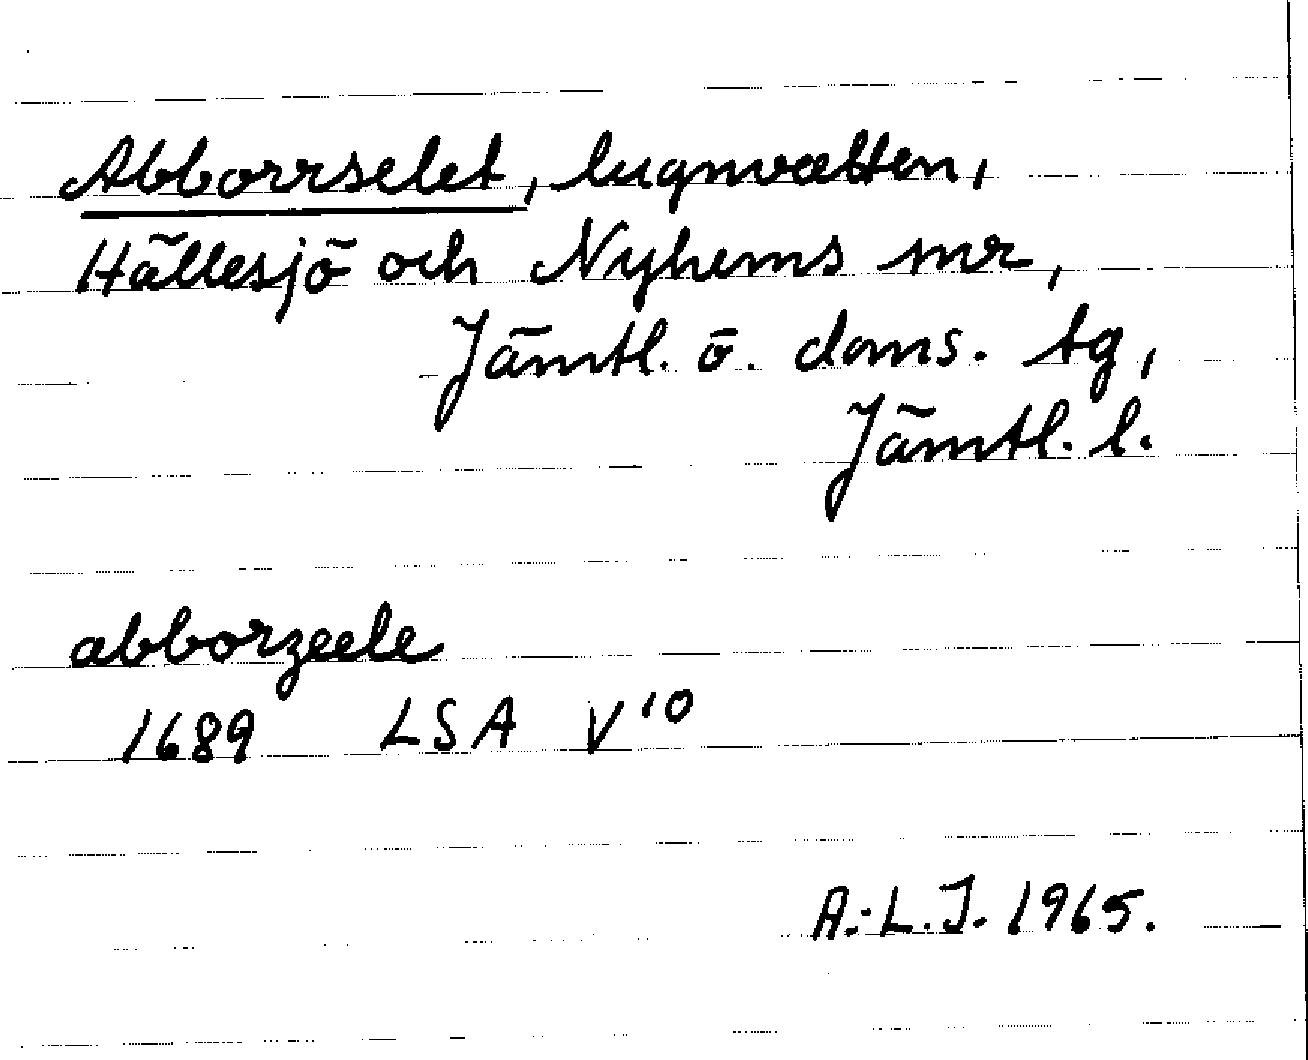 Abborrselet, lugnvatten,
Hällesjö och Nyhems snr,
Jämtl. ö. doms. tg,
Jämtl. l.
abborzeele
1689 LSA V10
A.-L.J. 1965.